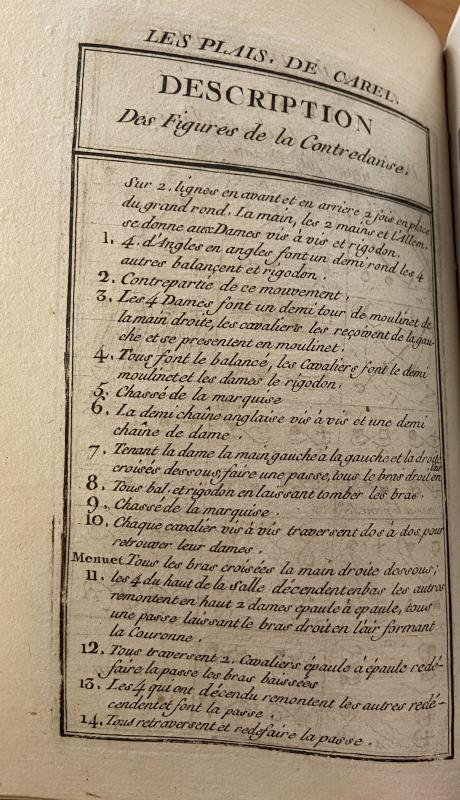 LES PLAIS. DE CAREL.
DESCRIPTION
Des Figures de la Contredanse.
Sur 2. lignes en avant et en arriere 2 fois en place
du grand rond. La main, les 2 mains et l'Allem.
se donne aux Dames vis à vis et rigodon.
1. 4. d'Angles en angles font un demi rond les 4
autres balancent et rigodon.
2. Contrepartie de ce mouvement.
3. Les 4 Dames font un demi tour de moulinet de
la main droite, les cavaliers les reçoivent de la gau-
che et se presentent en moulinet.
4. Tous font le balancé, les Cavaliers font le demi
moulinet et les dames le rigodon.
5. Chassé de la marquise
6. La demi chaîne anglaise vis à vis et une demi
chaîne de dame.
7. Tenant la dame la main gauche à la gauche et la droite
croisés dessous, faire une passe, tous le bras droit en l'air
8. Tous bal. et rigodon en laissant tomber les bras.
9. Chassé de la marquise.
10. Chaque cavalier vis à vis traversent dos à dos pour
retrouver leur dames.
Menuet Tous les bras croisées la main droite dessous;
11. les 4 du haut de la Salle décendent en bas les autres
remontent en haut 2 dames épaule à épaule, tous
une passe laissant le bras droit en l'air formant
la Couronne.
12. Tous traversent 2. Cavaliers épaule à épaule redé-
faire la passe les bras baissées
13. Les 4 qui ont décendu remontent les autres redé-
cendent et font la passe.
14. Tous retraversent et redefaire la passe.